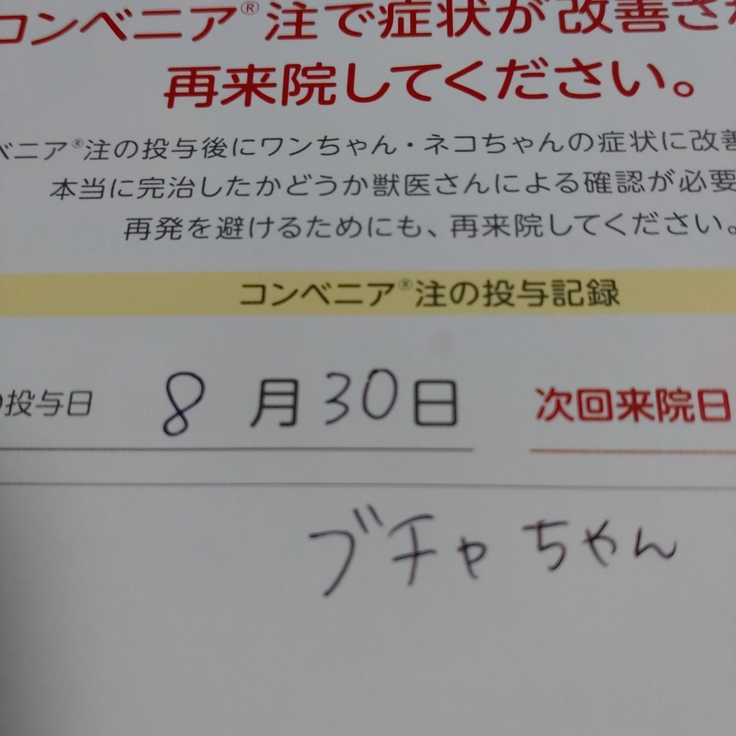 コンベニア®注で症状が改善さ
再来院してください。
ベニア®注の投与後にワンちゃん・ネコちゃんの症状に改善
本当に完治したかどうか獣医さんによる確認が必要
再発を避けるためにも、再来院してください。
コンベニア®注の投与記録
の投与日 8月30日 次回来院日
ブチャちゃん